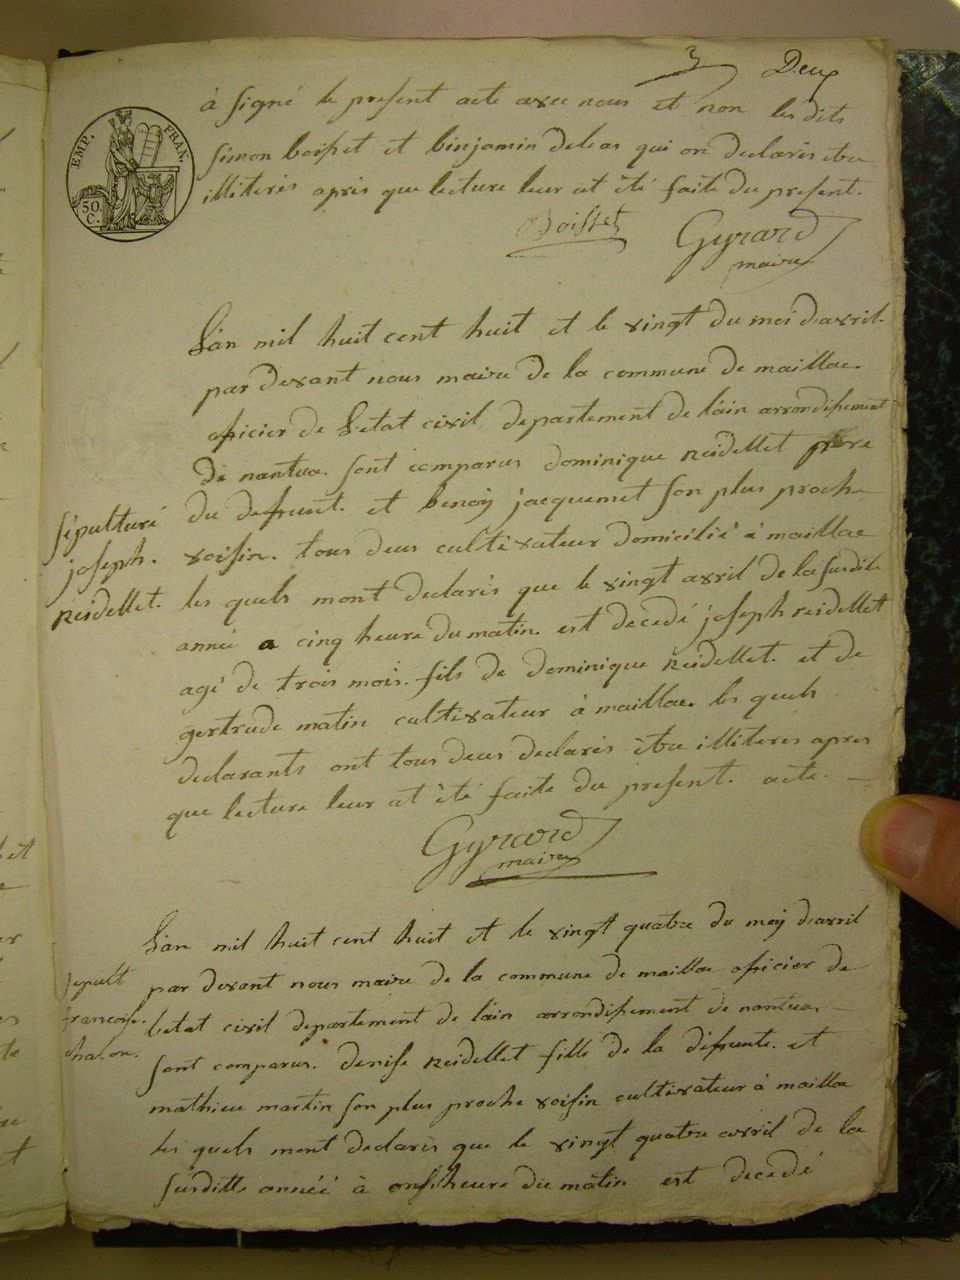 3 Deux
EMP. FRAN.
50 C.
à signé le present acte avec nous et non les dits
simon boisset et binjamin deleas qui on declarés être
illiterés aprés que lecture leur at été faite du present.
Boisset Gyrard
maire
L'an mil huit cent huit et le vingt du moi d'avril.
par devant nous maire de la commune de maillac
oficier de l'etat civil departement de l'ain arrondisement
de nantua. sont comparus dominique reidellet pere
du defeunt. et benoij jacquemet son plus proche
voisin. tous deus cultivateur domicilié à maillac
les quels mont declarés que le vingt avril de la susdite
année a cinq heure du matin est decedé joseph reidellet
agé de trois mois. fils de dominique reidellet. et de
gertrude matin cultivateur à maillac les quels
declarants ont tous deus declarés être illiteres apres
que lecture leur at été faite du present. acte.
sépulturé
joseph.
reidellet.
Gyrard
maire
L'an mil huit cent huit et le vingt quatre du moij d'avril
par devant nous maire de la commune de maillac oficier de
letat civil departement de l'ain arrondisement de nantua
sont comparus. denise reidellet fille de la défeunte. et
mathieu martin son plus proche voisin cultivateur à maillac
les quels mont declarés que le vingt quatre avril de la
susditte année à onse heure du matin est decedé
sepult
francoise.